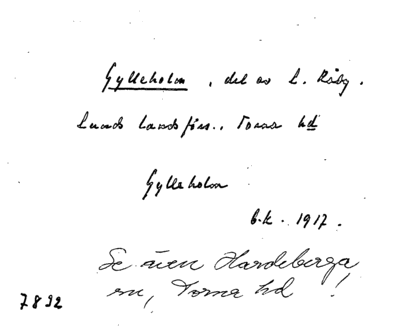 Gylleholm, del av L. Råby.
Lunds landsförs., Torna hd
Gylleholm
G.k. 1917.
Se även Hardeberga
sn, Torna hd !
7892